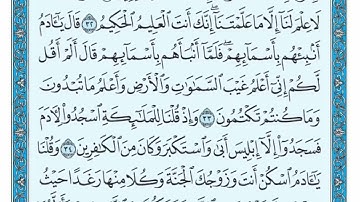 لَا عِلْمَ لَنَآ إِلَّا مَا عَلَّمْتَنَآ ۖ إِنَّكَ أَنتَ ٱلْعَلِيمُ ٱلْحَكِيمُ ٣٢ قَالَ يَـٰٓـَٔادَمُ
أَنۢبِئْهُم بِأَسْمَآئِهِمْ ۖ فَلَمَّآ أَنۢبَأَهُم بِأَسْمَآئِهِمْ قَالَ أَلَمْ أَقُل
لَّكُمْ إِنِّىٓ أَعْلَمُ غَيْبَ ٱلسَّمَـٰوَٰتِ وَٱلْأَرْضِ وَأَعْلَمُ مَا تُبْدُونَ
وَمَا كُنتُمْ تَكْتُمُونَ ٣٣ وَإِذْ قُلْنَا لِلْمَلَـٰٓئِكَةِ ٱسْجُدُوا۟ لِـَٔادَمَ
فَسَجَدُوٓا۟ إِلَّآ إِبْلِيسَ أَبَىٰ وَٱسْتَكْبَرَ وَكَانَ مِنَ ٱلْكَـٰفِرِينَ ٣٤ وَقُلْنَا
يَـٰٓـَٔادَمُ ٱسْكُنْ أَنتَ وَزَوْجُكَ ٱلْجَنَّةَ وَكُلَا مِنْهَا رَغَدًا حَيْثُ